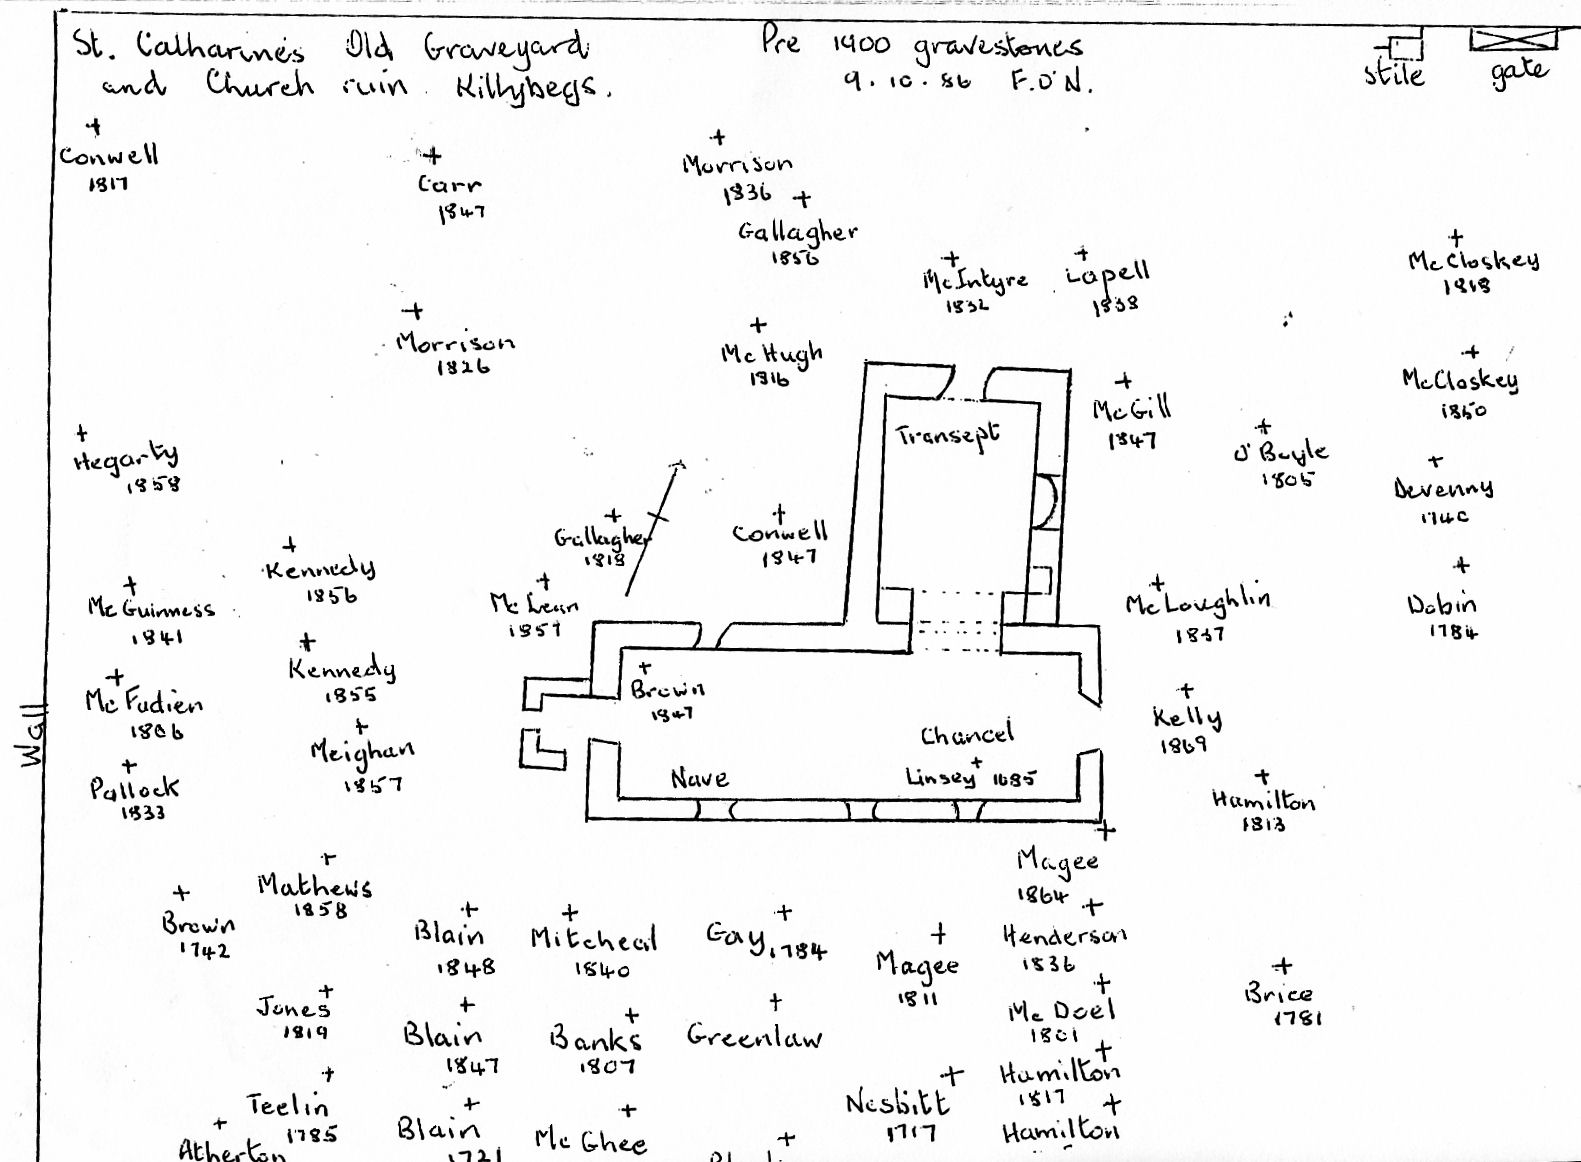 St. Catharine's Old Graveyard
and Church ruin. Killybegs.
Pre 1900 gravestones
9.10.86 F.O'N.
stile
gate
Conwell
1817
Carr
1847
Morrison
1836
Gallagher
1856
McIntyre
1832
Lapell
1838
McCloskey
1818
Morrison
1826
McHugh
1816
McGill
1847
McCloskey
1850
O'Boyle
1805
Devenny
1740
Transept
Hegarty
1858
Gallagher
1818
Conwell
1847
Kennedy
1856
McLean
1857
McGuinness
1841
McLoughlin
1837
Dobin
1784
Kennedy
1855
Brown
1847
McFadien
1806
Wall
Meighan
1857
Pallock
1833
Nave
Chancel
Linsey 1685
Kelly
1869
Hamilton
1813
Magee
1864
Mathews
1858
Brown
1742
Blain
1848
Mitcheal
1840
Gay, 1784
Magee
1811
Henderson
1836
Brice
1781
Jones
1819
Blain
1847
Banks
1807
Greenlaw
McDoel
1801
Hamilton
1817
Teelin
1785
Atherton
Blain
1721
McGhee
Nesbitt
1717
Hamilton